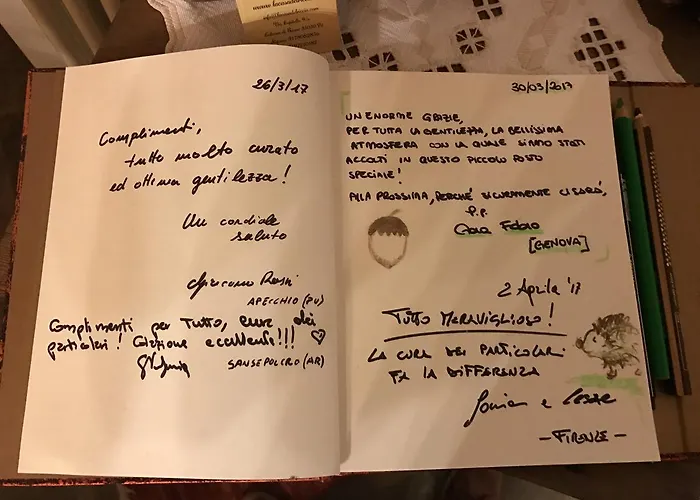 26/3/17
Complimenti,
tutto molto curato
ed ottima gentilezza!
Un cordiale
saluto
APECCHIO (PU)
Complimenti per Tutto, cura dei
particolari! Colazione eccellente!!!
SANSEPOLCRO (AR)
30/03/2017
UN ENORME GRAZIE,
PER TUTTA LA GENTILEZZA, LA BELLISSIMA
ATMOSFERA CON LA QUALE SIAMO STATI
ACCOLTI IN QUESTO PICCOLO POSTO
SPECIALE!
ALLA PROSSIMA, PERCHÉ SICURAMENTE CI SARÀ,
[GENOVA]
2 Aprile '17
TUTTO MERAVIGLIOSO!
LA CURA DEI PARTICOLARI
FA LA DIFFERENZA
- FIRENZE -